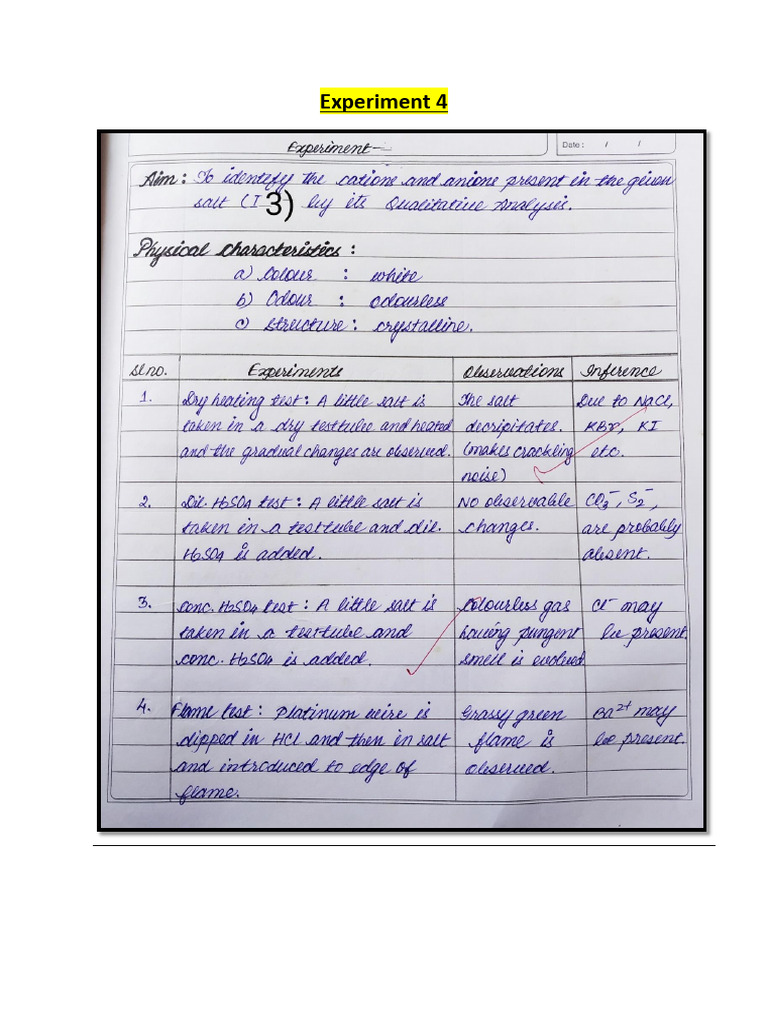 Experiment 4
Experiment-
Date : / /
Aim : To identify the cations and anions present in the given
salt (I 3) by its Qualitative Analysis.
Physical Characteristics :
a) Colour : white
b) Odour : odourless
c) Structure : crystalline.
Sl no. Experiments Observations Inference
1. Dry heating test : A little salt is The salt Due to NaCl,
taken in a dry testtube and heated decripitates. KBr, KI
and the gradual changes are observed. (makes crackling etc.
noise)
2. Dil. H2SO4 test : A little salt is No observable CO3-, S2-,
taken in a testtube and dil. changes. are probably
H2SO4 is added. absent.
3. conc. H2SO4 test : A little salt is Colourless gas Cl- may
taken in a testtube and having pungent be present
conc. H2SO4 is added. smell is evolved
4. Flame test : Platinum wire is Grassy green Ba2+ may
dipped in HCl and then in salt flame is be present.
and introduced to edge of observed.
flame.